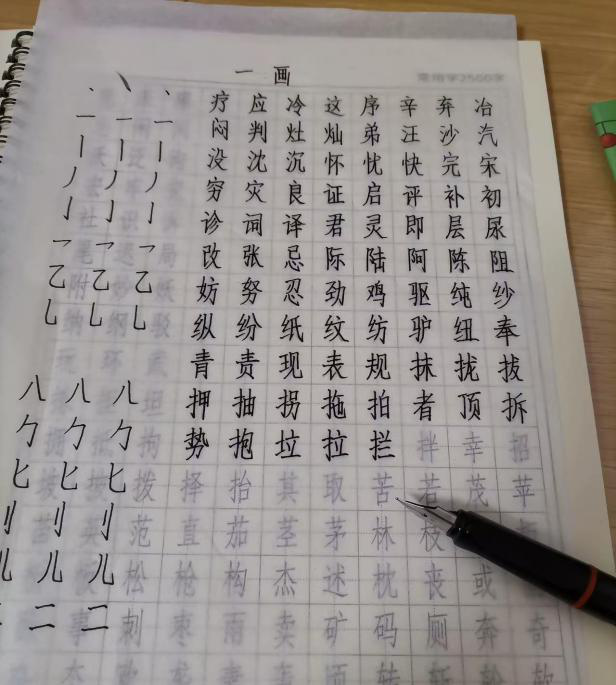 一画
常用字2500字
疗应冷这序辛弃冶
闷判灶灿弟汪沙汽
没沈沉怀忧快完宋
穷灾良证启评补初
诊词译君灵即层尿
改张忌际陆阿陈阻
妨努忍劲鸡驱纯纱
纵纷纸纹纺驴纽奉
青责现表规抹拢拔
押抽拐拖拍者顶拆
势抱垃拉拦拌幸招
拨择抬其取苦若茂苹
范直茄茎茅林枝
松枪构杰述枕丧或
事刺枣雨卖矿码厕奔奇
丶丶丶
一一一
丨丨丨
丿丿丿
亅亅亅
乛乛乛
乙乙乙
乚乚乚
八八八
勹勹勹
匕匕匕
刂刂刂
儿儿儿
二二二